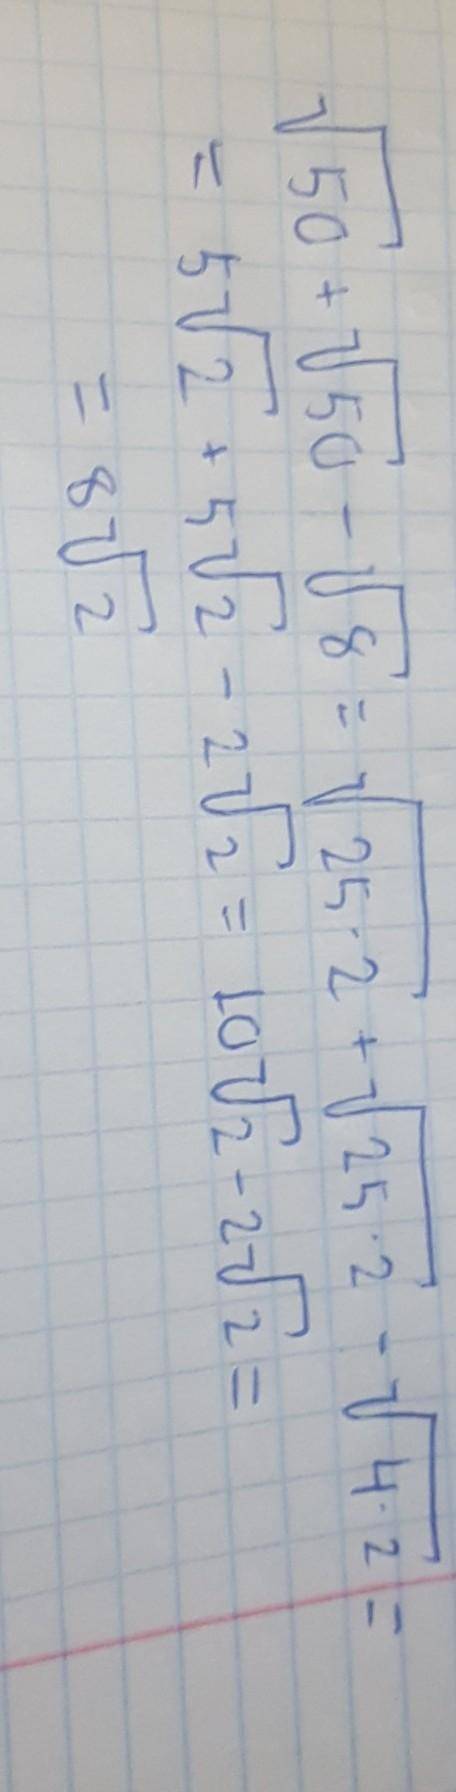 √50 + √50 - √8 = √25·2 + √25·2 - √4·2 =
= 5√2 + 5√2 - 2√2 = 10√2 - 2√2 =
= 8√2